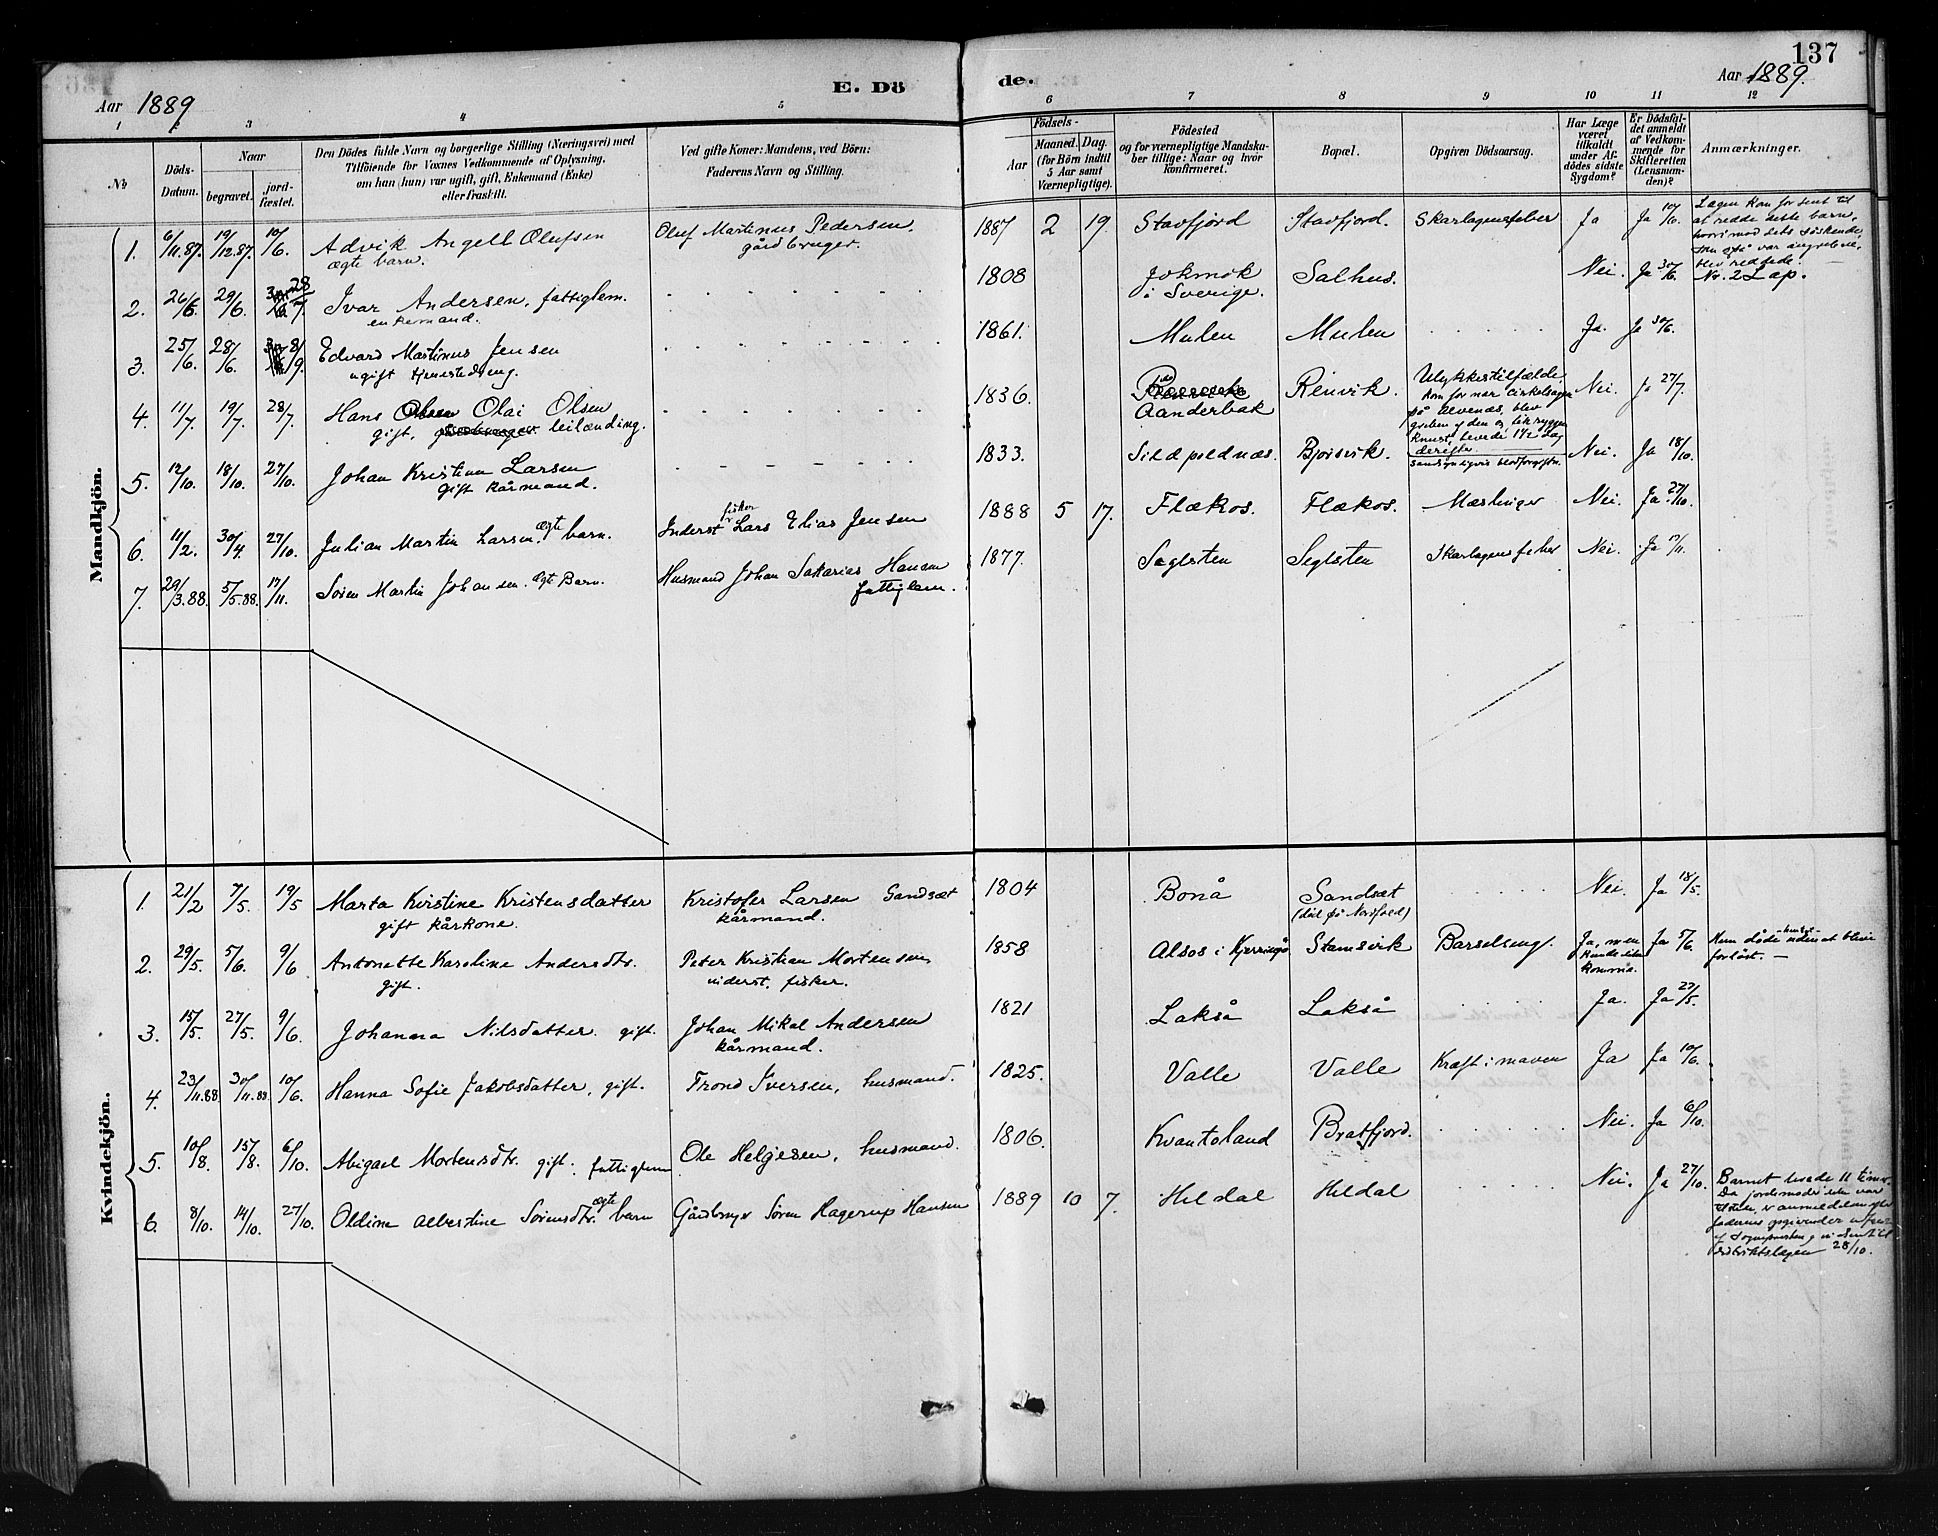 137
E. Döde.
Aar 1889
Aar 1889.
1 2 3 4 5 6 7 8 9 10 11 12
№
Döds-Datum.
Naar
begravet.
jord-fæstet.
Den Dödes fulde Navn og borgerlige Stilling (Næringsvei) med
Tilföiende for Voxnes Vedkommende af Oplysning,
om han (hun) var ugift, gift, Enkemand (Enke)
eller fraskilt.
Ved gifte Koner: Mandens, ved Börn:
Faderens Navn og Stilling.
Födsels-
Aar
Maaned. Dag.
(for Börn indtil
5 Aar samt
Værnepligtige).
Födested
og for værnepligtige Mandska-
ber tillige: Naar og hvor
konfirmeret.
Bopæl.
Opgiven Dödsaarsag.
Har Læge
været
tilkaldt
under Af-
dödes sidste
Sygdom?
Er Dödsfal-
det anmeldt
af Vedkom-
mende for
Skifteretten
(Lensman-
den)?
Anmærkninger.
Mandkjön.
1. 6/11.87. 19/12.87. 10/6. Advik Angell Olufsen
ægte barn.
Oluf Martinus Pedersen,
gårdbruger.
1887 2 19. Stavfjord Stavfjord. Skarlagensfeber Ja Ja 10/6.
Lægen kom for sent til
at redde dette barn,
hvorimod dets söskende,
som også var angrebne,
blev reddede.
2. 26/6. 29/6. 28/7. Ivar Andersen, fattiglem.
enkemand.
1808 Jokmok
i Sverige. Salhus. Nei. Ja 30/6. Nr. 2 Lap.
3. 25/6. 28/6. 8/9. Edvard Martinus Jensen
ugift tjenestedreng.
1861. Mulen Mulen Ja. Ja 30/6.
4. 11/7. 19/7. 28/7. Hans Olai Olsen
gift, gårdbruger leilænding.
1836. Aanderbak Renvik. Ulykkestilfælde,
kom for nær cirkelsagen
på Alvenæs, blev
greben af den og fik ryggen
knust, levede 1 1/2 dag
derefter
Nei. Ja 27/7.
5. 12/10. 18/10. 27/10. Johan Kristian Larsen
gift kårmand.
1833. Sildpoldnæs. Bjørsvik. sandsynligvis blodforgiftn. Nei. Ja 18/10.
6. 11/2. 30/4. 27/10. Julian Martin Larsen. ægte barn.
Inderst fisker Lars Elias Jensen
1888 5 17. Flækos. Flækos. Mæslinger Nei. Ja. 27/10.
7. 29/3.88. 5/5.88. 17/11. Sören Martin Johansen. ægte Barn.
Husmand Johan Sakarias Hansen
fattiglem.
1877. Seglsten Seglsten Skarlagensfeber Nei. Ja 17/11.
Kvindekjön.
1. 21/2 7/5. 19/5 Marta Kirstine Kristensdatter
gift kårkone.
Kristofer Larsen Sandsæt
kårmand.
1804 Bonå Sandsæt
(död på Nordfold) Nei. Ja 18/5.
2. 29/5. 5/6. 9/6 Antonette Karoline Andersdtr.
gift.
Peter Kristian Mortensen
inderst, fisker.
1858 Alsos i Kjerringö Stamsvik Barselseng. Ja, men
kunde ikke
komme. Ja 5/6. Hun døde uden at blive
forløst. —
3. 15/5. 27/5. 9/6. Johanna Nilsdatter. gift.
Johan Mikal Andersen
kårmand.
1821 Lakså Lakså Ja. Ja 27/5.
4. 23/11.88. 30/11.88. 10/6. Hanna Sofie Jakobsdatter, gift.
Trond Iversen, husmand.
1825. Valle Valle Kræft i maven Ja Ja 10/6.
5. 10/8. 15/8. 6/10. Abigael Mortensdtr. gift. fattiglem
Ole Helgesen, husmand.
1806. Kvantoland Bratfjord. Nei. Ja 6/10.
6. 8/10. 14/10. 27/10. Oldine Albertine Sörensdtr. ægte barn
Gårdbruger Sören Hagerup Hansen
1889 10 7. Heldal Heldal Nei. Ja 27/10.
Barnet levede 11 timer.
Da jordemoder ikke var
tilstede, er anmeldelsen efter
faderens opgivender
28/10.